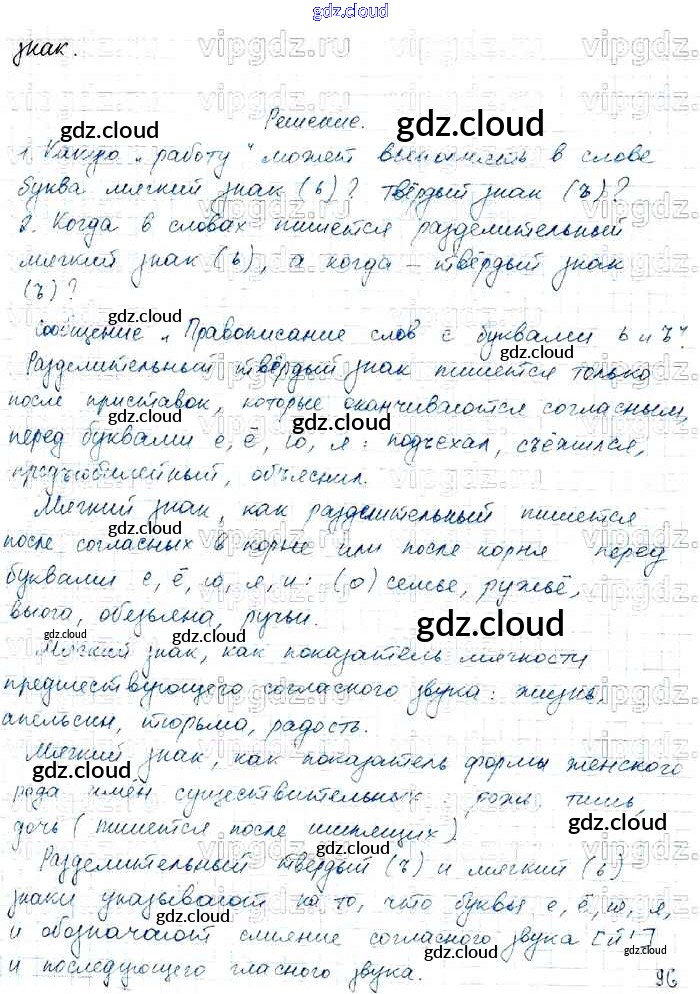 gdz.cloud
знак.
Решение.
1. Какую „работу" может выполнять в слове
буква мягкий знак (ь)? твёрдый знак (ъ)?
2. Когда в словах пишется разделительный
мягкий знак (ь), а когда – твёрдый знак
(ъ)?
Сообщение „Правописание слов с буквами ь и ъ".
Разделительный твёрдый знак пишется только
после приставок, которые оканчиваются согласным,
перед буквами е, ё, ю, я: подъехал, съёжился,
предъюбилейный, объяснил.
Мягкий знак, как разделительный пишется
после согласных в корне или после корня перед
буквами е, ё, ю, я, и: (о) семье, ружьё,
вьюга, обезьяна, ручьи.
Мягкий знак, как показатель мягкости
предшествующего согласного звука: жизнь,
апельсин, тюрьма, радость.
Мягкий знак, как показатель формы женского
рода имён существительных: рожь, тишь,
дочь (пишется после шипящих)
Разделительный твёрдый (ъ) и мягкий (ь)
знаки указывают на то, что буквы е, ё, ю, я,
и обозначают слияние согласного звука [й']
и последующего гласного звука.
96